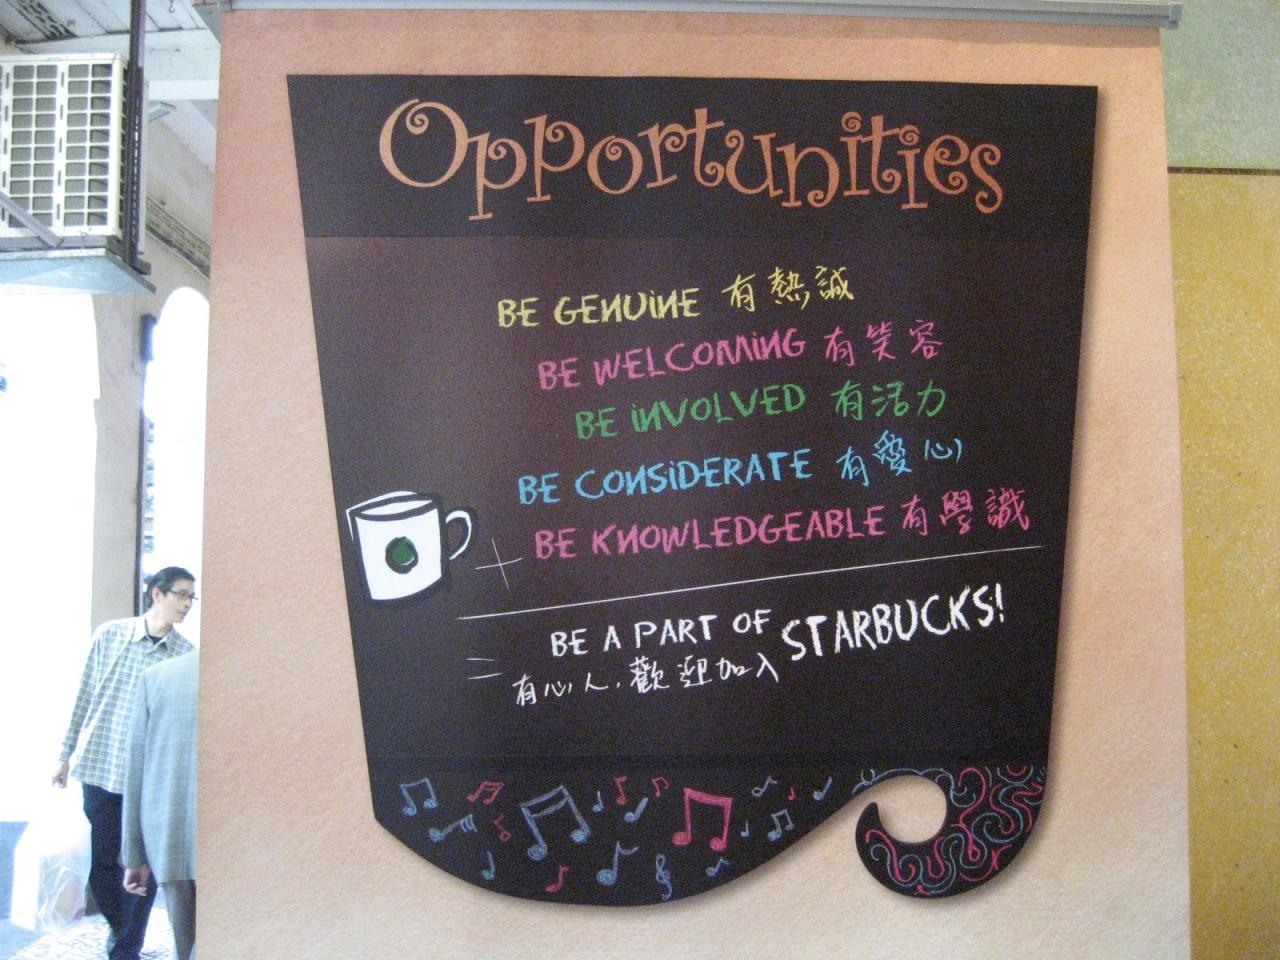 Opportunities
BE GENUINE 有熱誠
BE WELCOMING 有笑容
BE INVOLVED 有活力
BE CONSIDERATE 有愛心
BE KNOWLEDGEABLE 有學識
BE A PART OF STARBUCKS!
有心人,歡迎加入